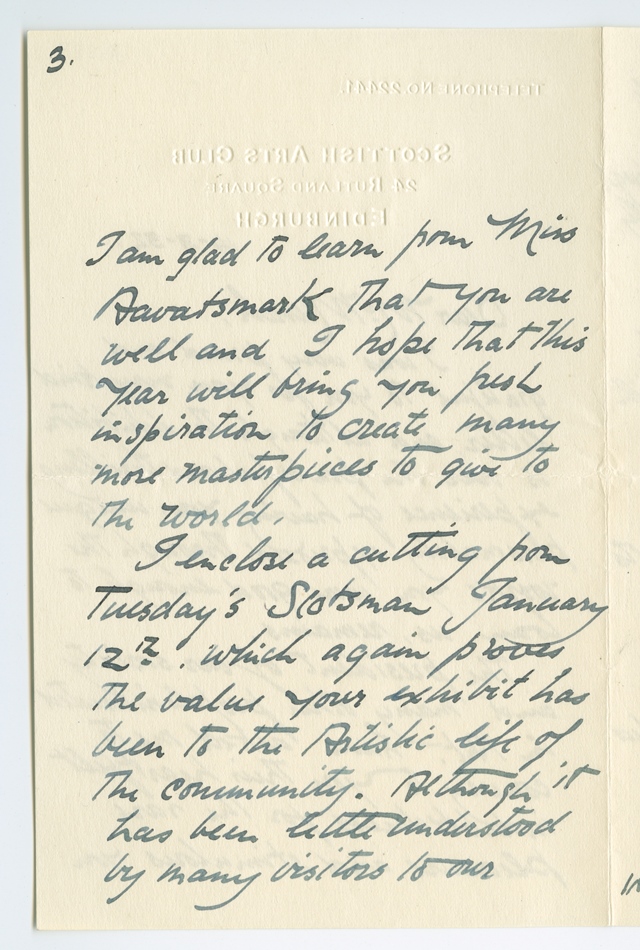 3.
TELEPHONE NO. 22441.
SCOTTISH ARTS CLUB
24 RUTLAND SQUARE
EDINBURGH
I am glad to learn from Miss
Aavatsmark that you are
well and I hope that this
year will bring you fresh
inspiration to create many
more masterpieces to give to
the world.
I enclose a cutting from
Tuesday's Scotsman January
12th. which again proves
the value your exhibit has
been to the Artistic life of
the community. Although it
has been little understood
by many visitors to our